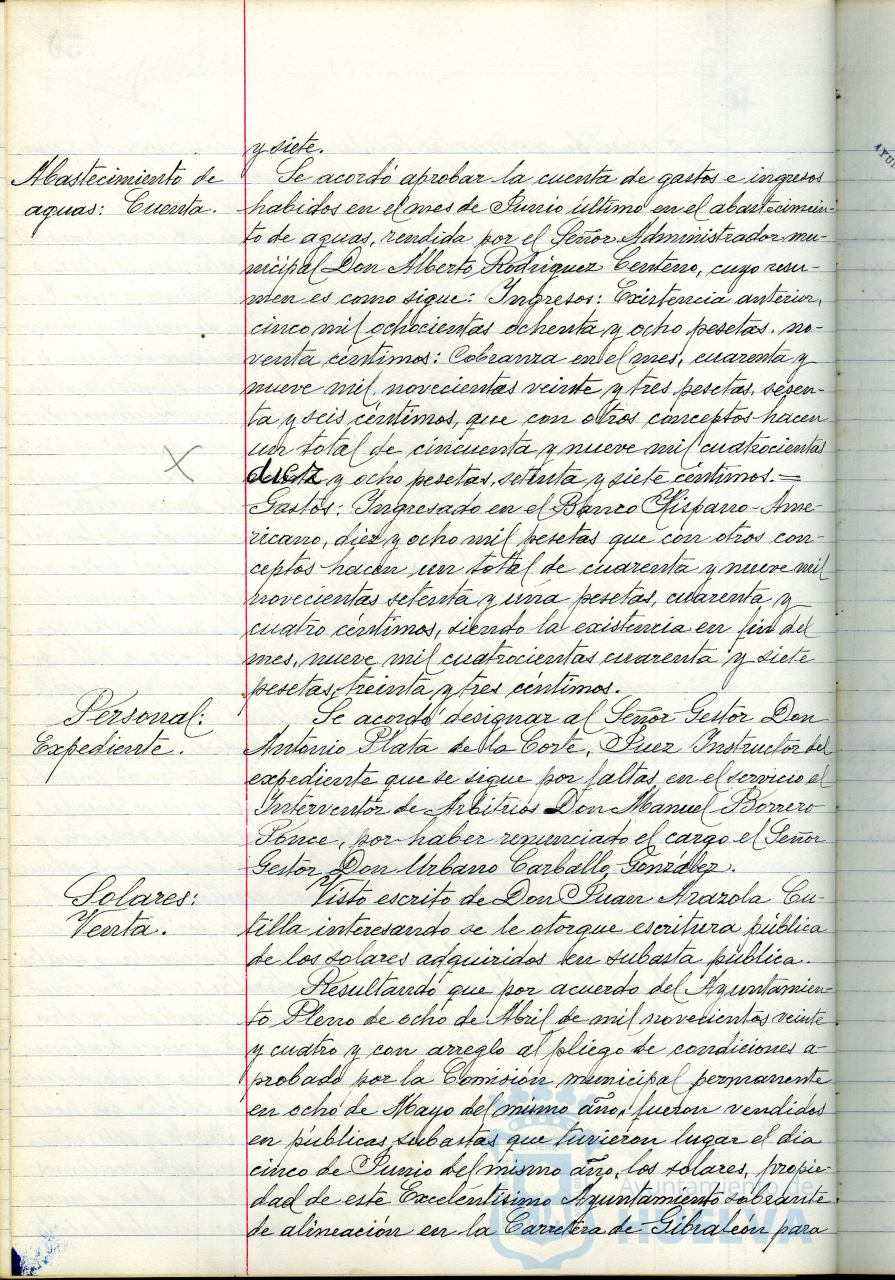 y siete.
Abastecimiento de
aguas: Cuenta.
Se acordó aprobar la cuenta de gastos e ingresos
habidos en el mes de Junio último en el abastecimien-
to de aguas, rendida por el Señor Administrador mu-
nicipal Don Alberto Rodríguez Centeno, cuyo resu-
men es como sigue: Ingresos: Existencia anterior,
cinco mil ochocientas ochenta y ocho pesetas, no-
venta céntimos: Cobranza en el mes, cuarenta y
nueve mil novecientas veinte y tres pesetas, sesen-
ta y seis céntimos, que con otros conceptos hacen
un total de cincuenta y nueve mil cuatrocientas
diez y ocho pesetas, setenta y siete céntimos. =
Gastos: Ingresado en el Banco Hispano-Ame-
ricano, diez y ocho mil pesetas que con otros con-
ceptos hacen un total de cuarenta y nueve mil
novecientas setenta y una pesetas, cuarenta y
cuatro céntimos, siendo la existencia en fin del
mes, nueve mil cuatrocientas cuarenta y siete
pesetas, treinta y tres céntimos.
Personal:
Expediente.
Se acordó designar al Señor Gestor Don
Antonio Plata de la Corte, Juez Instructor del
expediente que se sigue por faltas en el servicio el
Interventor de Arbitrios Don Manuel Borrero
Ponce, por haber renunciado el cargo el Señor
Gestor Don Urbano Carballo González.
Solares:
Venta.
Visto escrito de Don Juan Arazola Cu-
tilla interesando se le otorgue escritura pública
de los solares adquiridos en subasta pública.
Resultando que por acuerdo del Ayuntamien-
to Pleno de ocho de Abril de mil novecientos veinte
y cuatro y con arreglo al pliego de condiciones a-
probado por la Comisión municipal permanente
en ocho de Mayo del mismo año, fueron vendidos
en públicas subastas que tuvieron lugar el dia
cinco de Junio del mismo año, los solares, propie-
dad de este Excelentísimo Ayuntamiento sobrante
de alineación en la Carretera de Gibraleón para
Ayuntamiento de
HUELVA